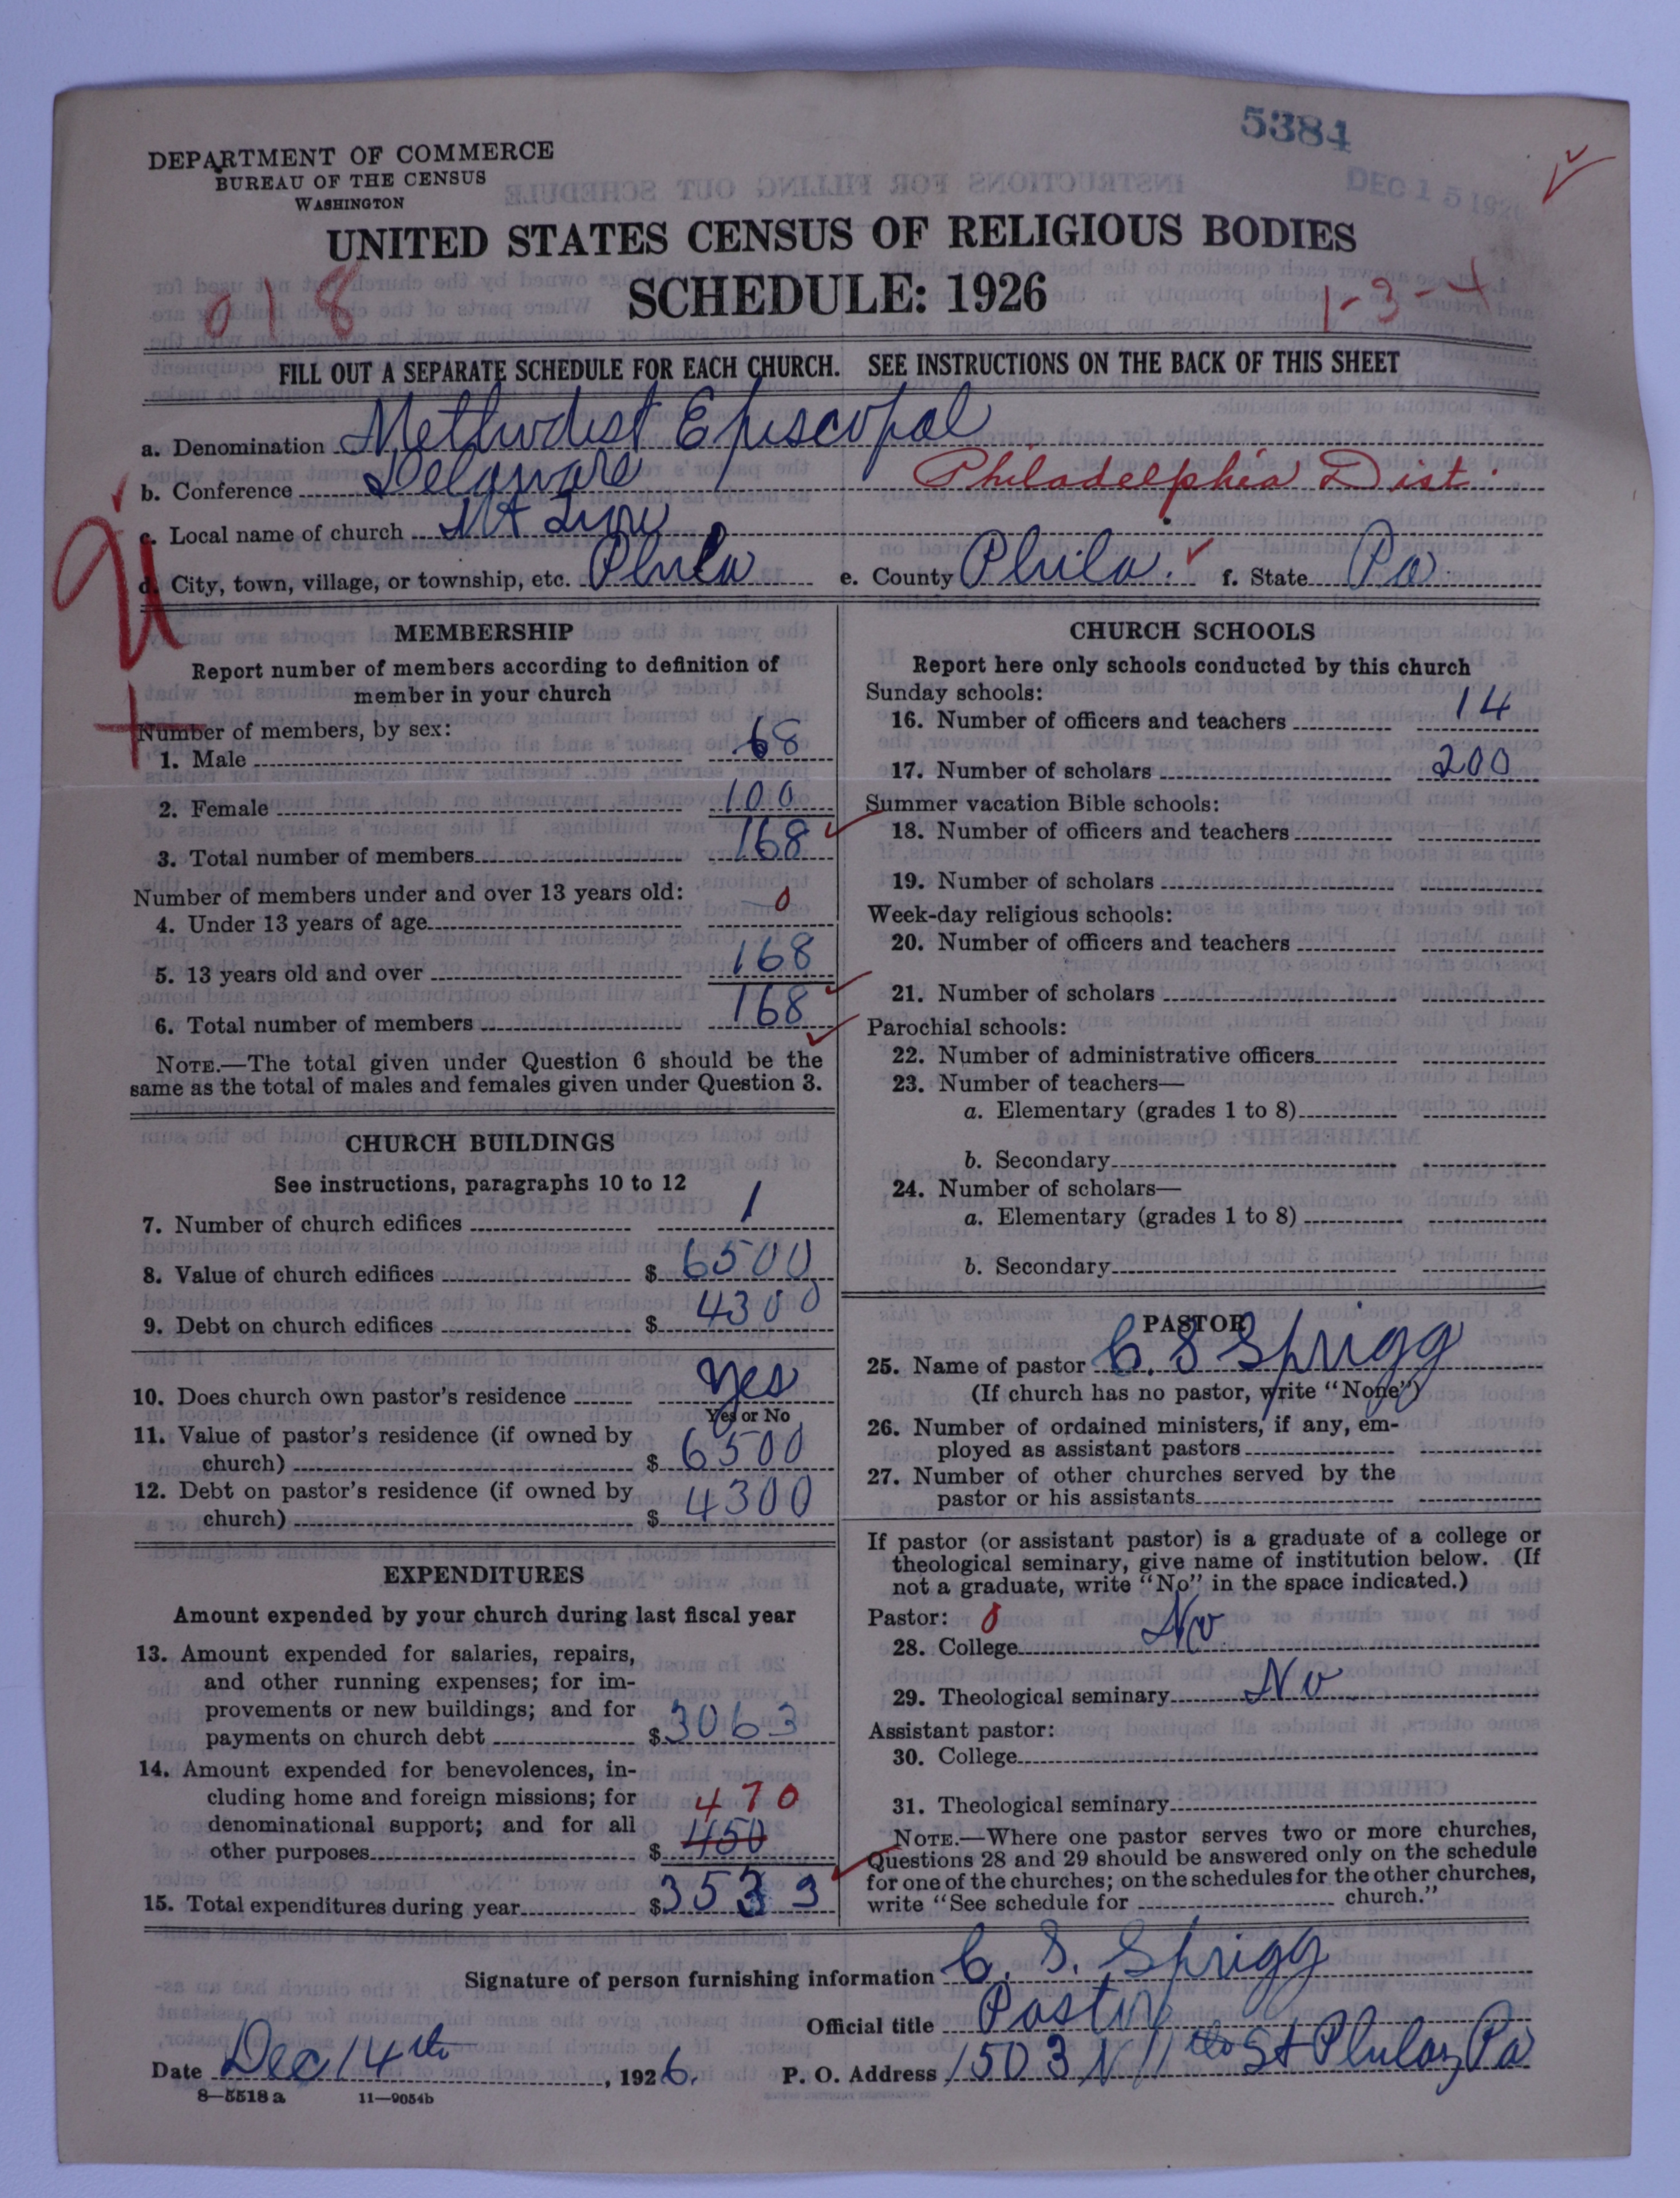 5384
DEC 15 192
DEPARTMENT OF COMMERCE
BUREAU OF THE CENSUS
WASHINGTON
UNITED STATES CENSUS OF RELIGIOUS BODIES
SCHEDULE: 1926
018
1-3-4
FILL OUT A SEPARATE SCHEDULE FOR EACH CHURCH. SEE INSTRUCTIONS ON THE BACK OF THIS SHEET
a. Denomination Methodist Episcopal
b. Conference Delaware Philadelphia Dist.
c. Local name of church Mt Zion
d. City, town, village, or township, etc. Phila e. County Phila. f. State Pa.
MEMBERSHIP
Report number of members according to definition of
member in your church
Number of members, by sex:
1. Male 68
2. Female 100
3. Total number of members 168
Number of members under and over 13 years old:
4. Under 13 years of age 0
5. 13 years old and over 168
6. Total number of members 168
NOTE.—The total given under Question 6 should be the
same as the total of males and females given under Question 3.
CHURCH BUILDINGS
See instructions, paragraphs 10 to 12
7. Number of church edifices 1
8. Value of church edifices $ 6500
9. Debt on church edifices $ 4300
10. Does church own pastor's residence yes
Yes or No
11. Value of pastor's residence (if owned by
church) $ 6500
12. Debt on pastor's residence (if owned by
church) $ 4300
EXPENDITURES
Amount expended by your church during last fiscal year
13. Amount expended for salaries, repairs,
and other running expenses; for im-
provements or new buildings; and for
payments on church debt $ 3063
14. Amount expended for benevolences, in-
cluding home and foreign missions; for
denominational support; and for all
other purposes $ 450
470
15. Total expenditures during year $ 3533
CHURCH SCHOOLS
Report here only schools conducted by this church
Sunday schools:
16. Number of officers and teachers 14
17. Number of scholars 200
Summer vacation Bible schools:
18. Number of officers and teachers
19. Number of scholars
Week-day religious schools:
20. Number of officers and teachers
21. Number of scholars
Parochial schools:
22. Number of administrative officers
23. Number of teachers—
a. Elementary (grades 1 to 8)
b. Secondary
24. Number of scholars—
a. Elementary (grades 1 to 8)
b. Secondary
PASTOR
25. Name of pastor C. S Sprigg
(If church has no pastor, write "None")
26. Number of ordained ministers, if any, em-
ployed as assistant pastors
27. Number of other churches served by the
pastor or his assistants
If pastor (or assistant pastor) is a graduate of a college or
theological seminary, give name of institution below. (If
not a graduate, write "No" in the space indicated.)
Pastor: 0
28. College No
29. Theological seminary No
Assistant pastor:
30. College
31. Theological seminary
NOTE.—Where one pastor serves two or more churches,
Questions 28 and 29 should be answered only on the schedule
for one of the churches; on the schedules for the other churches,
write "See schedule for church."
Signature of person furnishing information C. S. Sprigg
Official title Pastor
Date Dec 14th, 1926. P. O. Address 1503 N 11th St Phila, Pa
8—5518 a 11—9054b